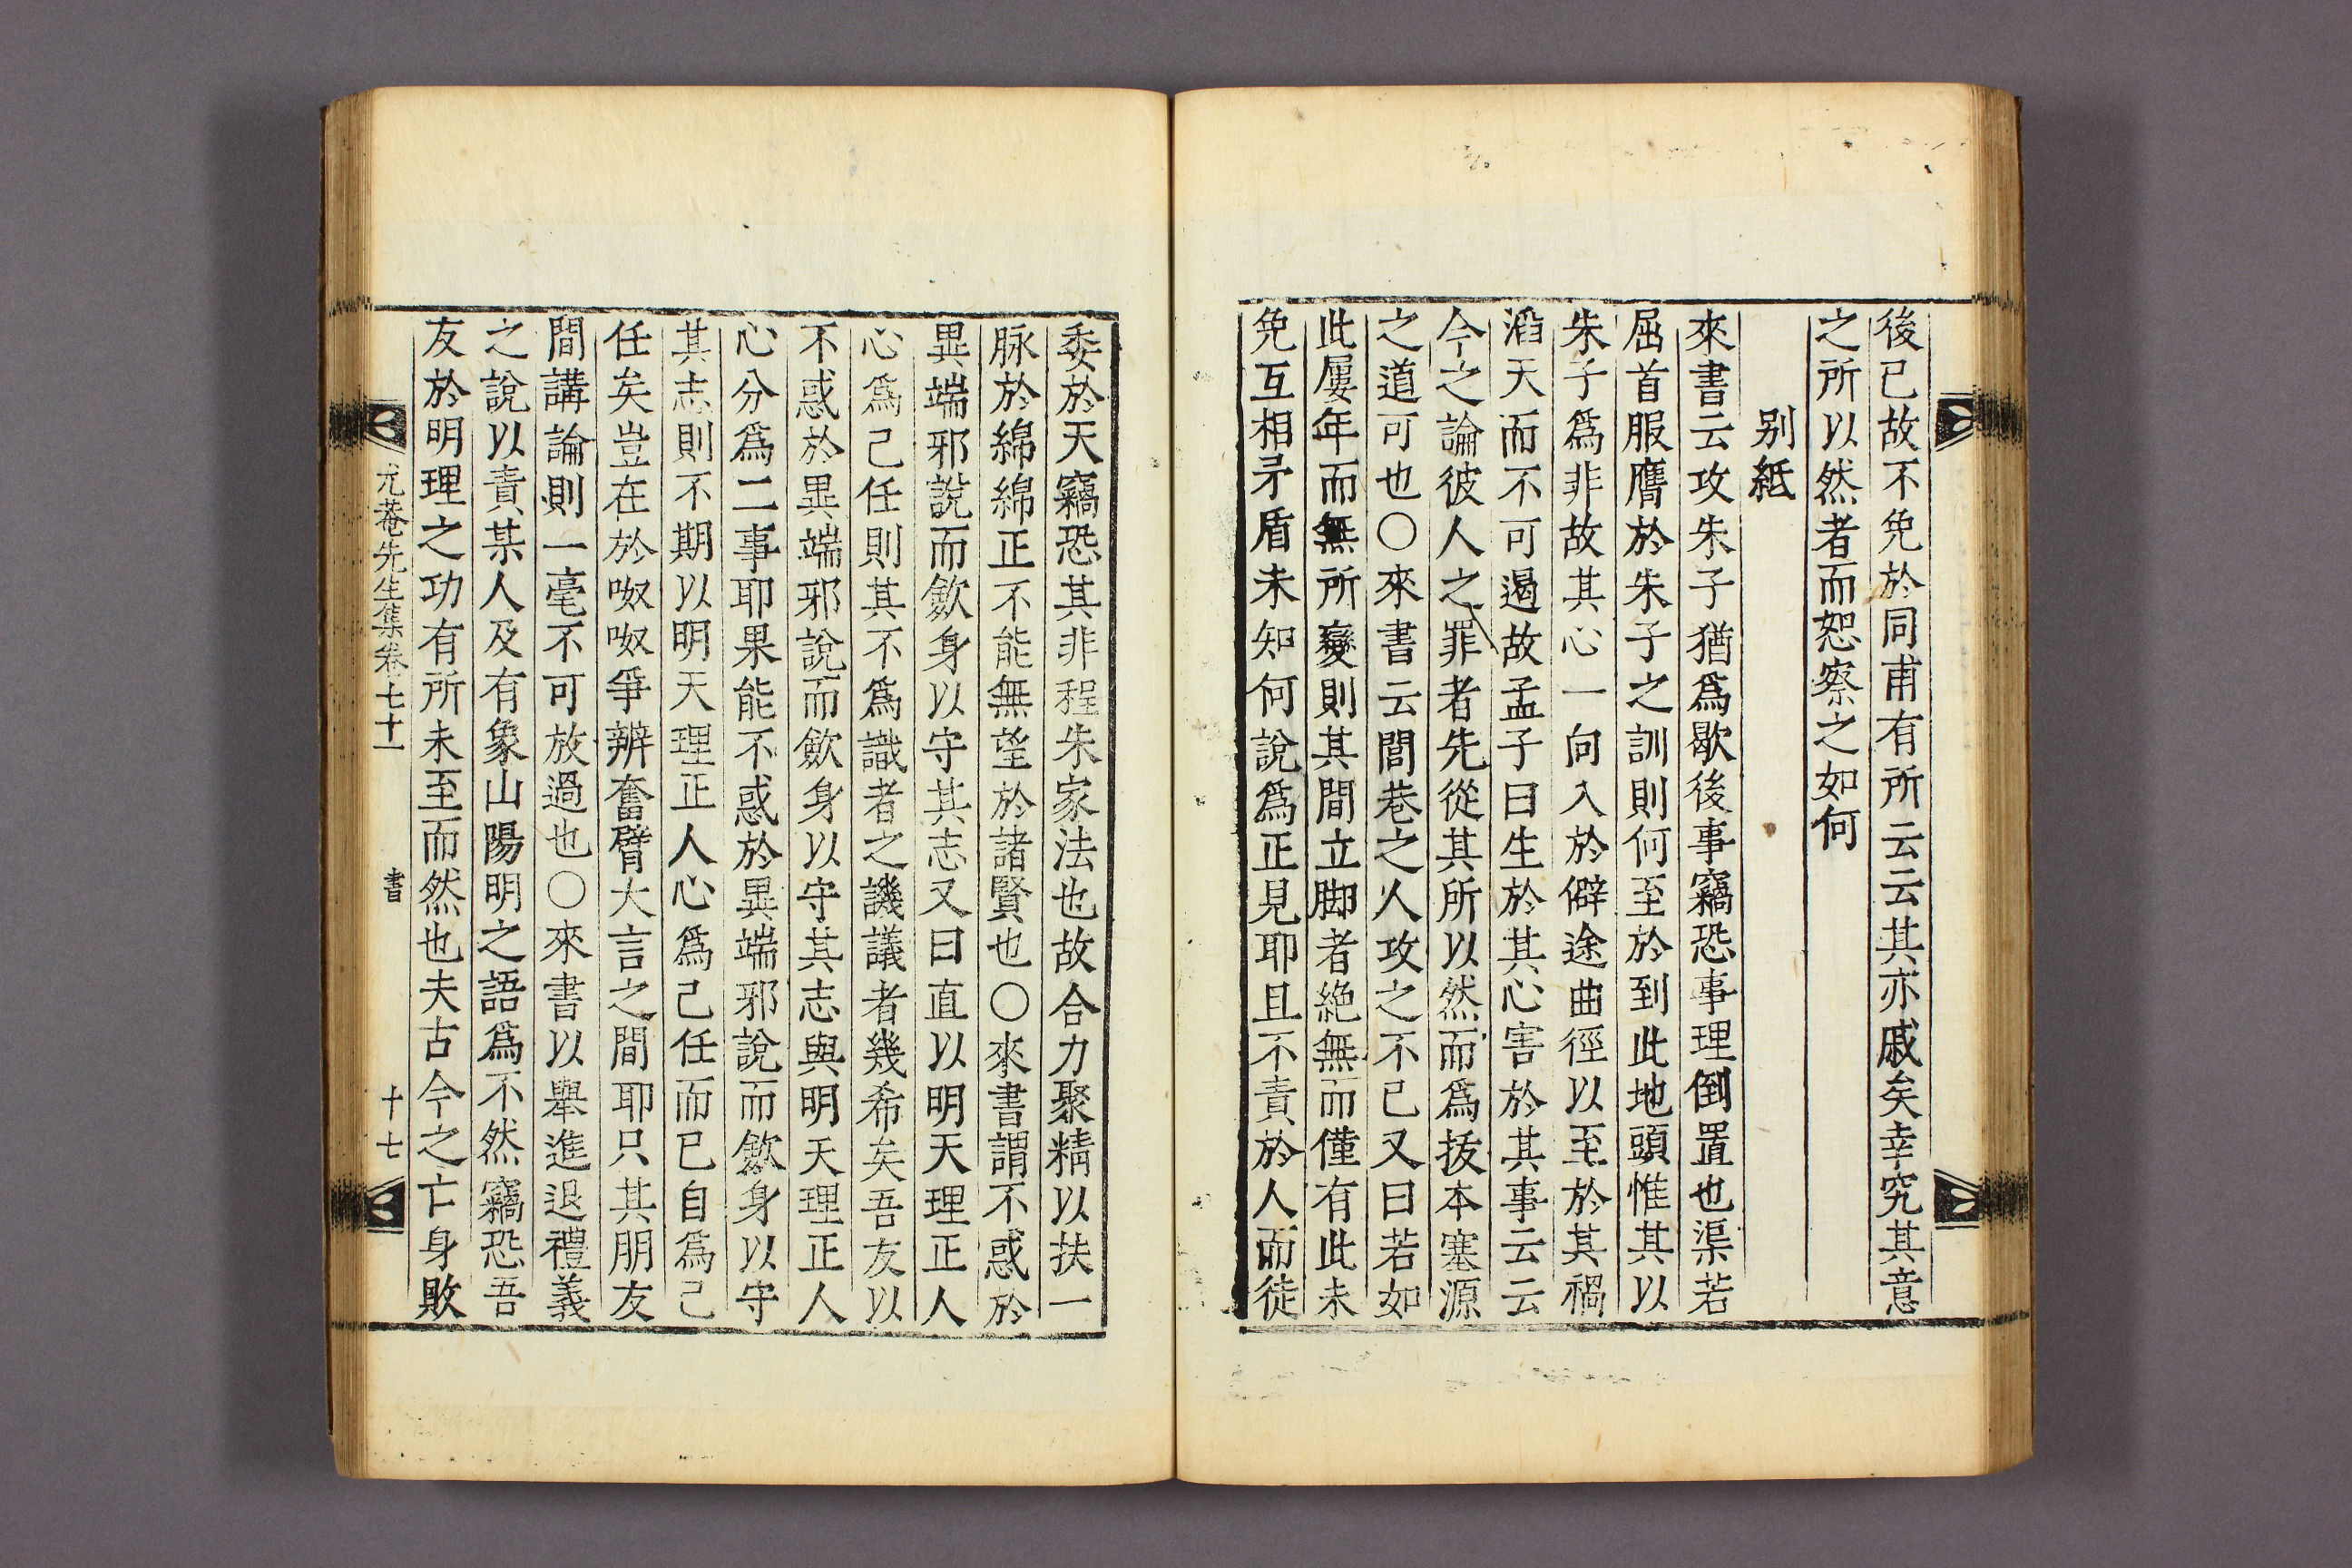 後已故不免於同甫有所云云其亦戚矣幸究其意
之所以然者而恕察之如何
別紙
來書云攻朱子猶爲歇後事竊恐事理倒置也渠若
屈首服膺於朱子之訓則何至於到此地頭惟其以
朱子爲非故其心一向入於僻途曲徑以至於其禍
滔天而不可遏故孟子曰生於其心害於其事云云
今之論彼人之罪者先從其所以然而爲拔本塞源
之道可也○來書云閭巷之人攻之不已又曰若如
此屢年而無所變則其間立脚者絶無而僅有此未
免互相矛盾未知何說爲正見耶且不責於人而徒
委於天竊恐其非程朱家法也故合力聚精以扶一
脉於綿綿正不能無望於諸賢也○來書謂不惑於
異端邪說而斂身以守其志又曰直以明天理正人
心爲己任則其不爲識者之譏議者幾希矣吾友以
不惑於異端邪說而斂身以守其志與明天理正人
心分爲二事耶果能不惑於異端邪說而斂身以守
其志則不期以明天理正人心爲己任而已自爲己
任矣豈在於呶呶爭辨奮臂大言之間耶只其朋友
間講論則一毫不可放過也○來書以舉進退禮義
之說以責某人及有象山陽明之語爲不然竊恐吾
友於明理之功有所未至而然也夫古今之亡身敗
尤菴先生集卷七十一 書 十七